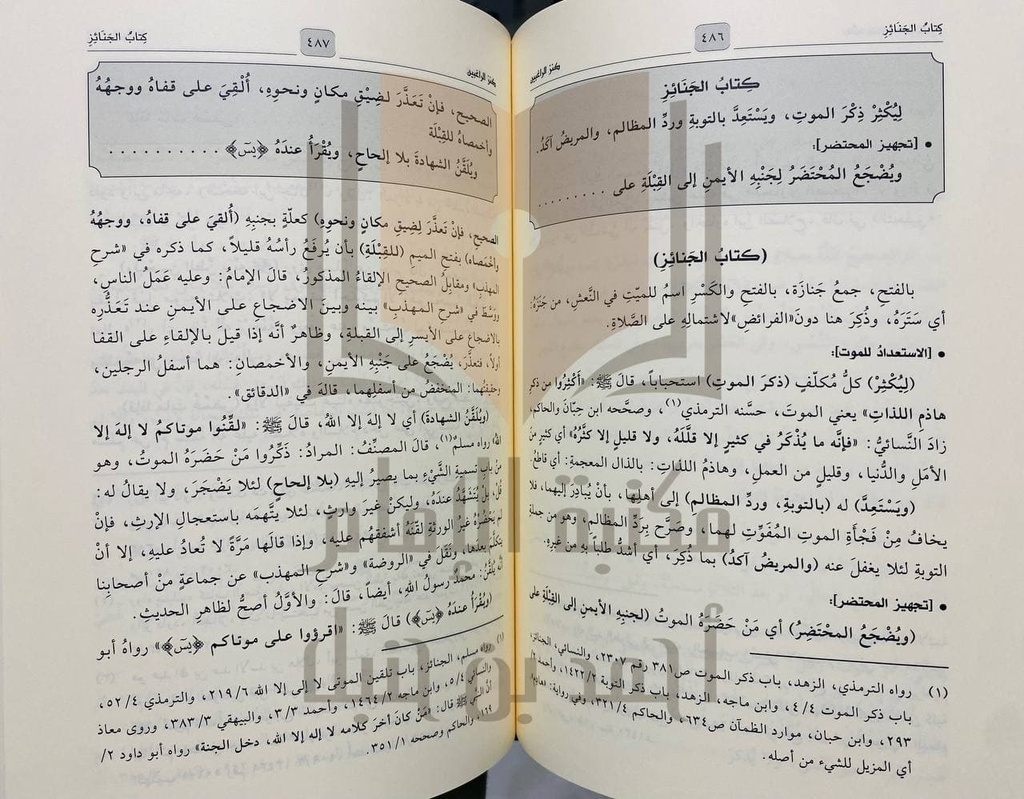 كِتابُ الجَنَائِزِ
٤٨٦
كنز الراغبين
كِتابُ الجَنَائِزِ
لِيُكْثِرْ ذِكْرَ الموتِ، ويَسْتَعِدَّ بالتوبةِ وردِّ المظالم، والمريضُ آكَدُ.
• [تجهيز المحتضر]:
ويُضْجَعُ المُحْتَضَرُ لِجَنبِهِ الأيمنِ إلى القِبْلَةِ على . . . . . . . .
(كتابُ الجَنائِزِ)
بالفتحِ، جمعُ جَنازة، بالفتحِ والكَسْرِ اسمٌ للميّتِ في النَّعشِ، من جَنَزَهُ:
أي سَتَرَهُ، وذُكِرَ هنا دونَ «الفرائضِ» لاشتمالِهِ على الصَّلاةِ.
• [الاستعدادُ للموت]:
(لِيُكْثِرْ) كلُّ مُكلّفٍ (ذكرَ الموتِ) استحباباً، قالَ ﷺ: «أكْثِرُوا من ذكرِ
هاذِمِ اللذاتِ» يعني الموتَ، حسَّنه الترمذي(١)، وصحَّحه ابن حِبّانَ والحاكم،
زادَ النَّسائيُّ: «فإنَّه ما يُذْكَرُ في كثيرٍ إلا قلَّلَهُ، ولا قليلٍ إلا كثَّرَهُ» أي كثيرٍ من
الأمَلِ والدُّنيا، وقليلٍ من العملِ، وهاذمُ اللذاتِ: بالذال المعجمةِ: أي قاطعُ.
(ويَسْتَعِدَّ) له (بالتوبةِ، وردِّ المظالمِ) إلى أهلِها، بأنْ يُبادِرَ إليهما، فلا
يخافُ مِنْ فَجْأةِ الموتِ المُفَوِّتِ لهما، وصَرَّحَ بِرَدِّ المظالم، وهو من جملةِ
التوبةِ لئلا يغفلَ عنه (والمريضُ آكدُ) بما ذُكِرَ، أي أشدُّ طلباً بِهِ من غيرِهِ.
• [تجهيز المحتضر]:
(ويُضْجَعُ المحْتَضَرُ) أي مَنْ حَضَرَهُ الموتُ (لجنبِهِ الأيمنِ إلى القِبْلَةِ على
(١) رواه الترمذي، الزهد، باب ذكر الموت ص٣٨١ رقم ٢٣٠٧، والنسائي، الجنائز،
باب ذكر الموت ٤/٤، وابن ماجه، الزهد، باب ذكر التوبة ١٤٢٢/٢، وأحمد ٢/
٢٩٣، وابن حبان، موارد الظمآن ص٦٣٤، والحاكم ٣٢١/٤، وفي رواية: «هادم»
أي المزيل للشيء من أصله.
كِتابُ الجَنَائِزِ
٤٨٧
كنز الراغبين
الصحيح، فإنْ تَعَذَّرَ لضِيْقِ مكانٍ ونحوِهِ، أُلْقِيَ على قفاهُ ووجهُهُ
وأخمصاهُ للقِبْلَة
ويُلَقَّنُ الشهادةَ بلا إلحاحٍ، ويُقْرَأُ عندَهُ ﴿يسَ﴾ . . . . . . . . . .
الصحيحِ، فإنْ تعذَّرَ لضِيقِ مكانٍ ونحوِهِ) كعلّةٍ بجنبِهِ (أُلقيَ على قفاهُ، ووجهُهُ
وأخْمَصاهُ) بفتح الميم (للقِبْلَةِ) بأن يُرفَعَ رأسُهُ قليلاً، كما ذكره في «شرح
المهذبِ» ومقابلُ الصحيحِ الإلقاءُ المذكورُ، قالَ الإمامُ: وعليه عَمَلُ الناسِ،
ووَسَّطَ في «شرح المهذبِ» بينه وبينَ الاضجاعِ على الأيمنِ عند تَعَذُّرِهِ
بالاضجاعِ على الأيسرِ إلى القبلةِ، وظاهرٌ أنَّه إذا قيلَ بالإلقاءِ على القفا
أولاً، فتعذَّرَ، يُضْجَعُ على جَنْبِهِ الأيمنِ، والأخمصانِ: هما أسفلُ الرجلينِ،
وحقيقتُهما: المنخفضُ من أسفلِهما، قالهُ في «الدقائق».
(ويُلَقَّنُ الشهادةَ) أي لا إلهَ إلا اللهُ، قالَ ﷺ: «لقِّنُوا موتاكُم لا إلهَ إلا
اللهُ» رواه مسلمٌ(١)، قال المصنِّفُ: المرادُ: ذَكِّرُوا مَنْ حَضَرَهُ الموتُ، وهو
من باب تسميةِ الشَّيْءِ بما يصيرُ إليهِ (بلا إلحاحٍ) لئلا يَضْجَرَ، ولا يقالُ له:
قُلْ، بَلْ يُتَشَهَّدُ عندَهُ، وليكنْ غيرَ وارثٍ، لئلا يتَّهمَه باستعجالِ الإرثِ، فإنْ
لم يَحْضُرْهُ غيرُ الورثةِ لقَّنَهُ أشفقُهم عليه، وإذا قالَها مَرَّةً لا تُعادُ عليهِ، إلا أنْ
يتكلَّمَ بعدَها، ونَقَلَ في «الروضة» و«شرح المهذب» عن جماعةٍ منْ أصحابِنا
أنَّه يُلَقَّنُ: محمدٌ رسولُ اللهِ، أيضاً، قالَ: والأوَّلُ أصحُّ لظاهرِ الحديثِ.
(ويُقْرَأُ عندَهُ ﴿يسَ﴾) قَالَ ﷺ: «اقرؤوا على موتاكم ﴿يسَ﴾» رواهُ أبو
(١) رواه مسلم، الجنائز، باب تلقين الموتى لا إله إلا الله ٢١٩/٦، والترمذي ٥٢/٤،
والنسائي ٥/٤، وابن ماجه ١٤٦٤/٢، وأحمد ٣/٣، والبيهقي ٣٨٣/٣، وروى معاذ
أنَّ النبي ﷺ قال: «مَنْ كانَ آخرَ كلامه لا إله إلا الله، دخل الجنة» رواه أبو داود ٢/
١٦٩، والحاكم وصححه ٣٥١/١.
مكتبة الإمام
أحمد بن حنبل